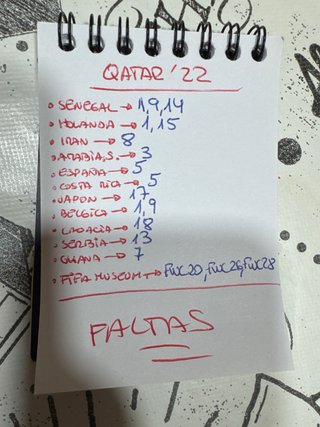 QATAR '22
• SENEGAL → 1,9,14
• HOLANDA → 1,15
• IRAN → 8
• ARABIA S. → 3
• ESPAÑA → 5
• COSTA RICA → 5
• JAPON → 17
• BELGICA → 1,9
• CROACIA → 18
• SERBIA → 13
• GHANA → 7
• FIFA MUSEUM → FWC20, FWC26, FWC28
FALTAS